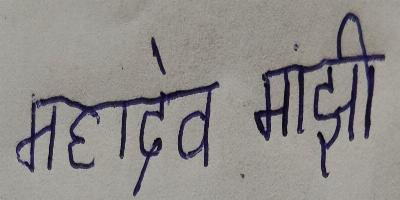 महादेव मांझी